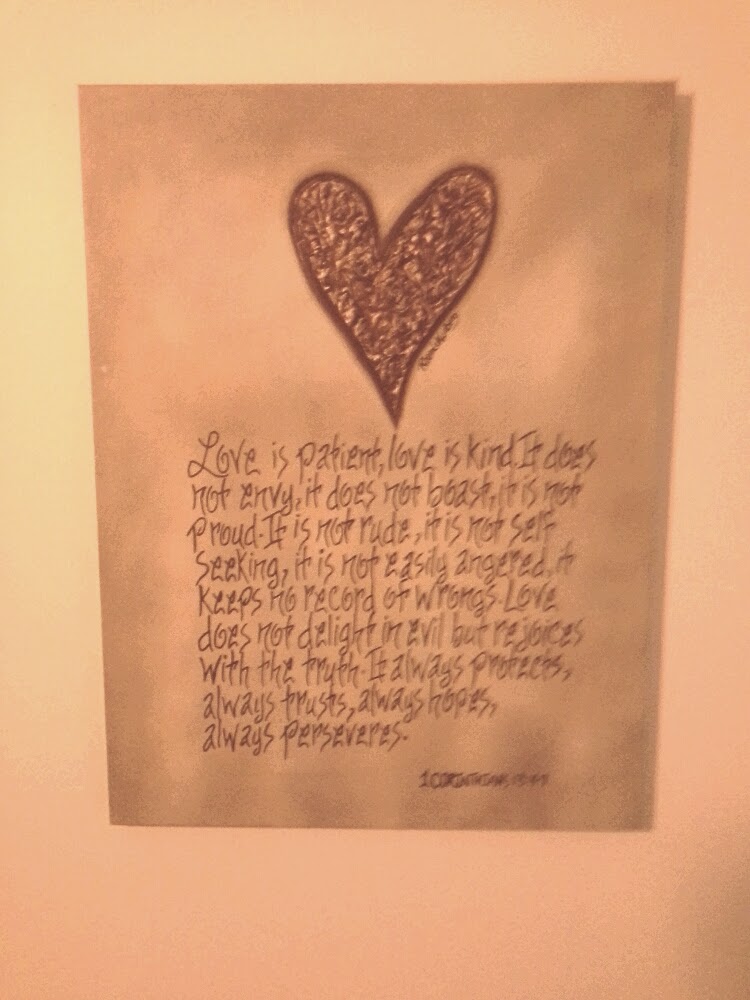 Love is patient, love is kind. It does
not envy, it does not boast, it is not
proud. It is not rude, it is not self
seeking, it is not easily angered, it
keeps no record of wrongs. Love
does not delight in evil but rejoices
with the truth. It always protects,
always trusts, always hopes,
always perseveres.
1 CORINTHIANS